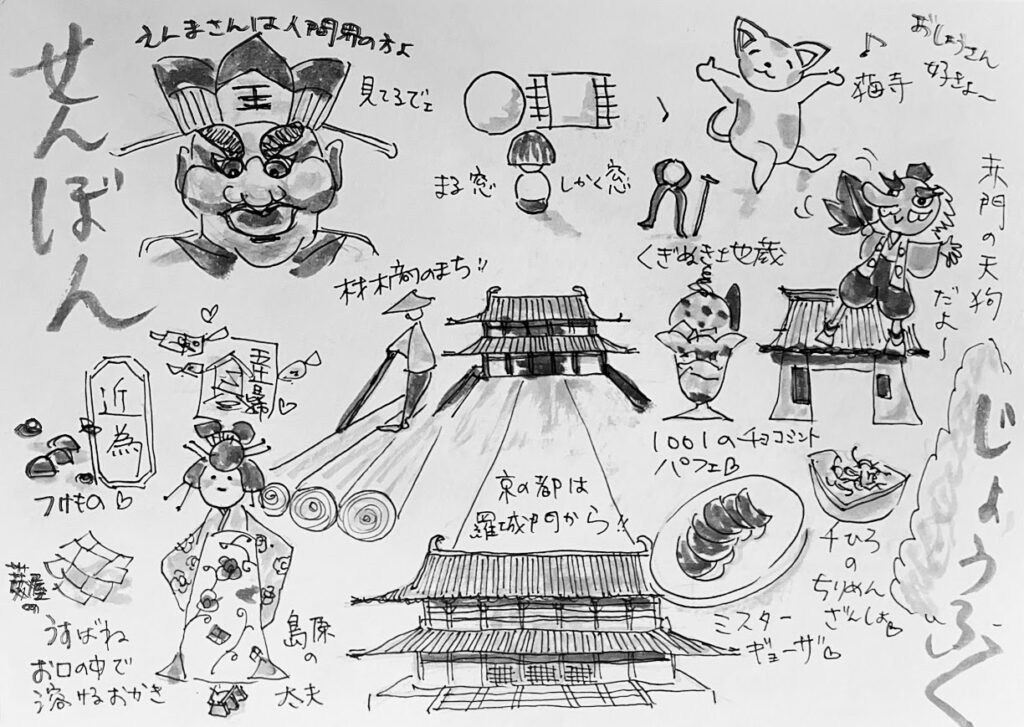 せんぼん
えんまさんは人間界の方よ
見てるでェ
王
まる窓
しかく窓
♪
猫寺
おしょうさん
好きよ〜
くぎぬき地蔵
赤門の天狗
だよ〜
材木商のまち!!
近為
つけもの♡
五辻の昆布
京の都は
羅城門から!!
1001のチョコミント
パフェ♡
ミスター
ギョーザ♡
千ひろ
の
ちりめん
ざんしょ♡
島原
の
太夫
薮屋の
うすばね
お口の中で
溶けるおかき
じょうふく